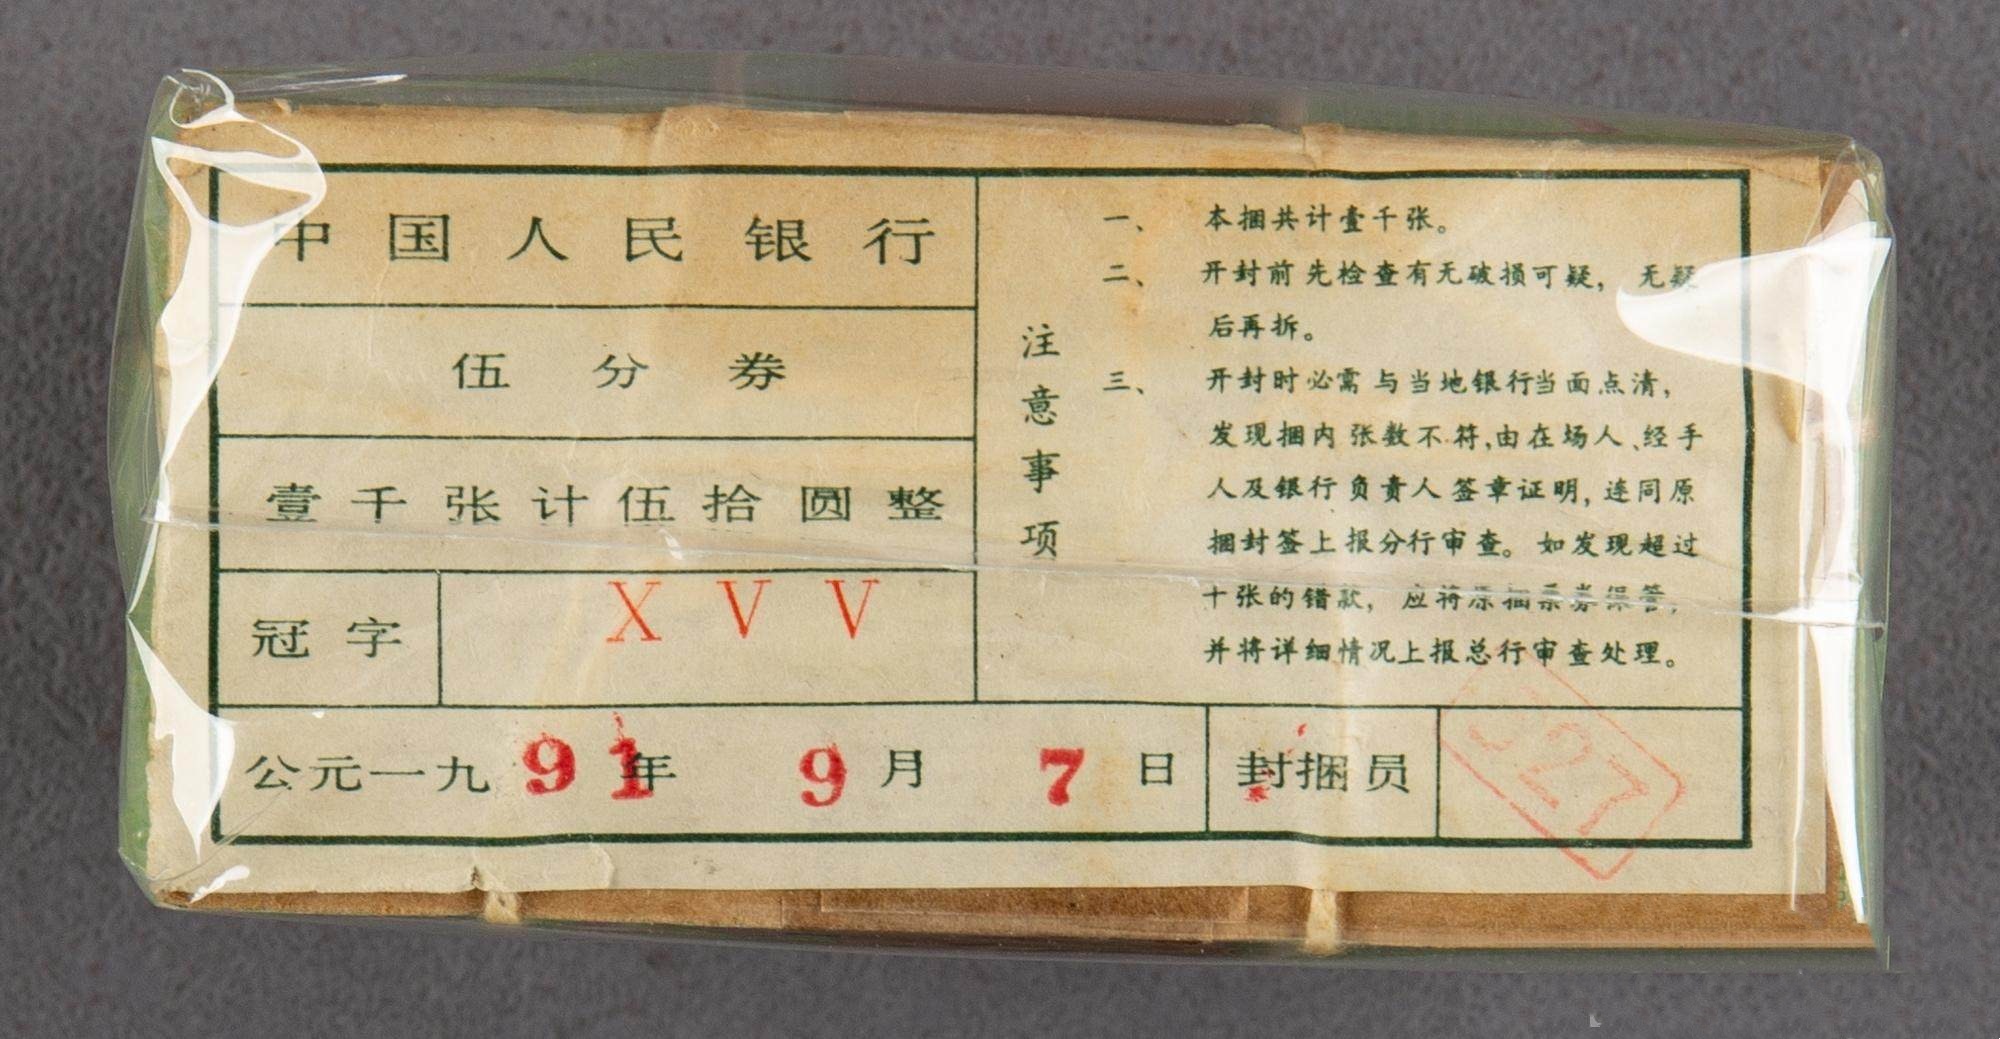 中国人民银行
伍分券
壹千张计伍拾圆整
冠字 XVV
公元一九91年 9月 7日
封捆员
327
注意事项
一、 本捆共计壹千张。
二、 开封前先检查有无破损可疑， 无疑
后再拆。
三、 开封时必需与当地银行当面点清，
发现捆内张数不符,由在场人、经手
人及银行负责人签章证明，连同原
捆封签上报分行审查。如发现超过
十张的错款， 应将原捆票券保管，
并将详细情况上报总行审查处理。